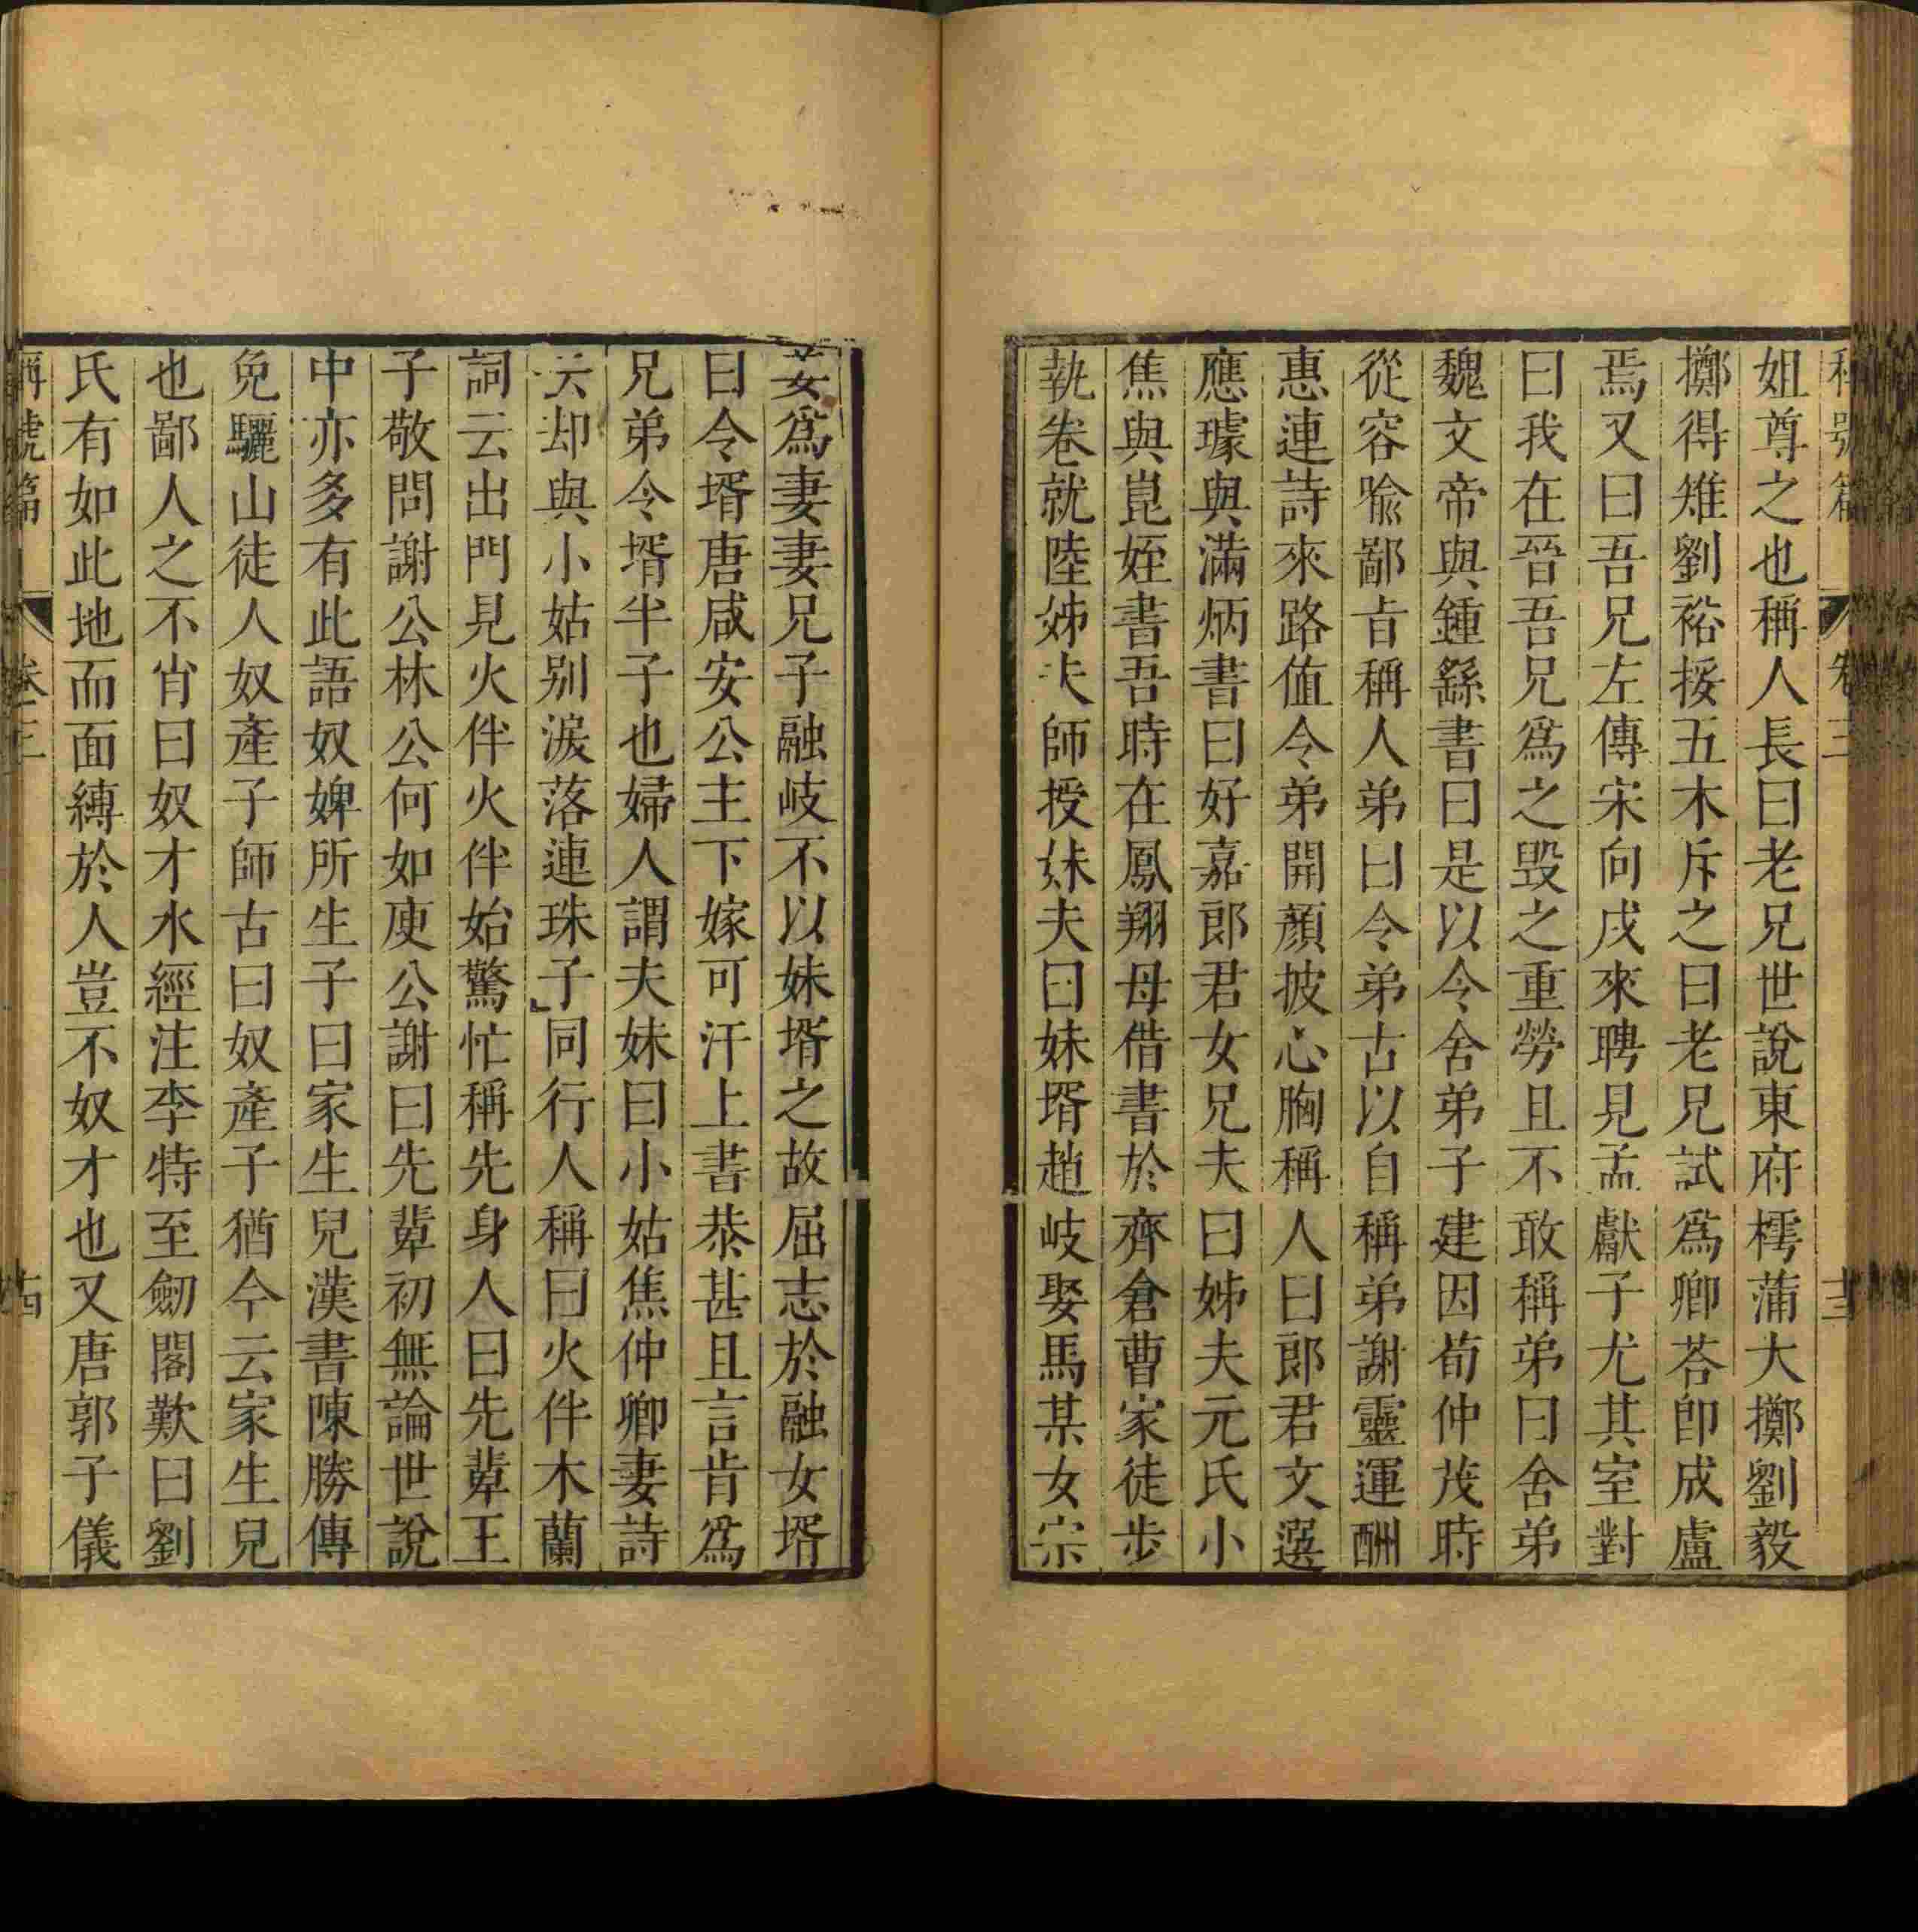 稱號篇 卷三 十三
姐尊之也稱人長曰老兄世說東府樗蒲大擲劉毅
擲得雉劉裕挼五木斥之曰老兄試爲卿荅卽成盧
焉又曰吾兄左傳宋向戌來聘見孟獻子尤其室對
曰我在晉吾兄爲之毀之重勞且不敢稱弟曰舍弟
魏文帝與鍾繇書曰是以令舍弟子建因荀仲茂時
從容喻鄙㫖稱人弟曰令弟古以自稱弟謝靈運酬
惠連詩來路值令弟開顏披心胸稱人曰郎君文選
應璩與滿炳書曰好嘉郎君女兄夫曰姊夫元氏小
焦與崑姪書吾時在鳳翔母借書於齊倉曹家徒步
執卷就陸姊夫師授妹夫曰妹壻趙岐娶馬某女宗
姜爲妻妻兄子融岐不以妹壻之故屈志於融女壻
曰令壻唐咸安公主下嫁可汗上書恭甚且言肯爲
兄弟令壻半子也婦人謂夫妹曰小姑焦仲卿妻詩
云却與小姑別淚落連珠子同行人稱曰火伴木蘭
詞云出門見火伴火伴始驚忙稱先身人曰先輩王
子敬問謝公林公何如庾公謝曰先輩初無論世說
中亦多有此語奴婢所生子曰家生兒漢書陳勝傳
免驪山徒人奴產子師古曰奴產子猶今云家生兒
也鄙人之不肖曰奴才水經注李特至劒閣歎曰劉
氏有如此地而面縛於人豈不奴才也又唐郭子儀
稱號篇 卷三 十四